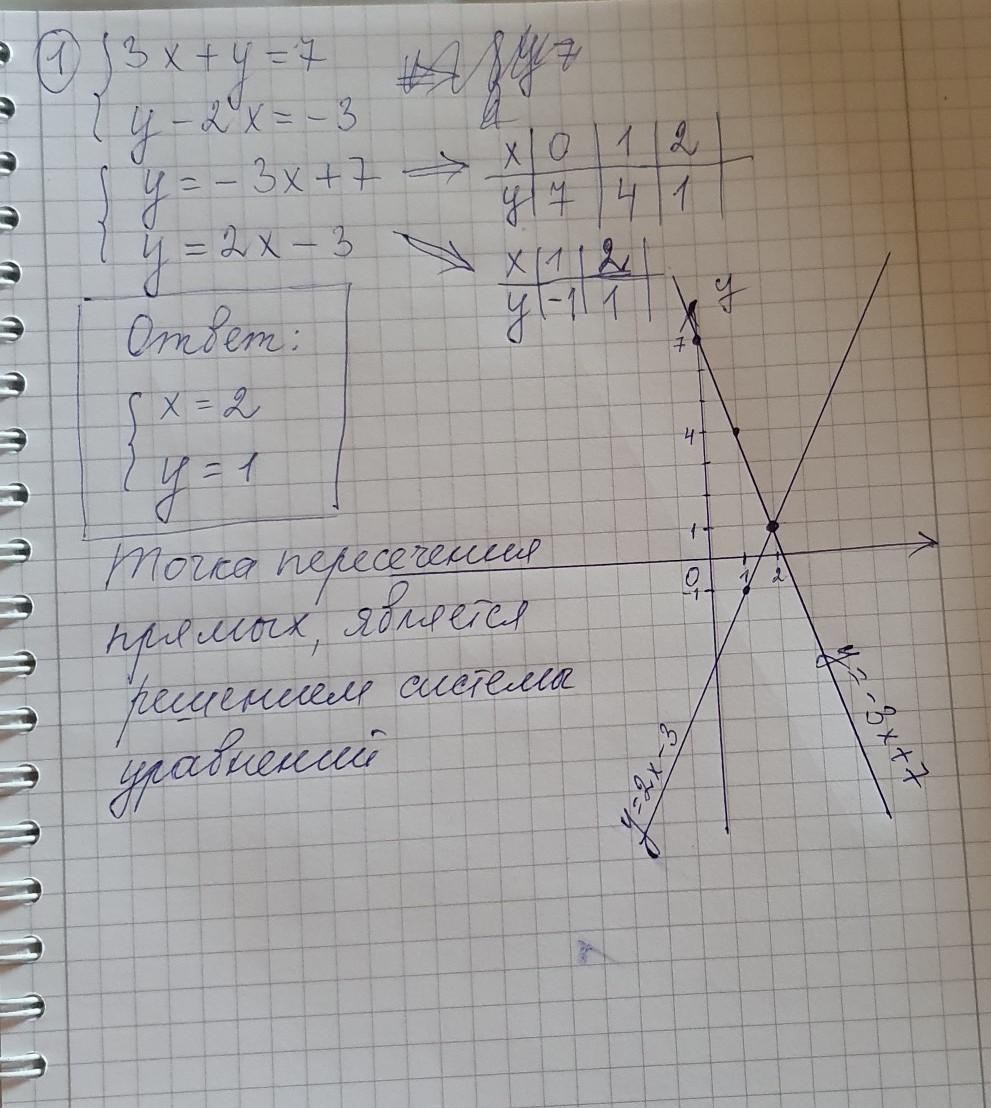 1 3x + y = 7
y - 2x = -3
y = -3x + 7
x 0 1 2
y 7 4 1
y = 2x - 3
x 1 2
y -1 1
Ответ:
x = 2
y = 1
Точка пересечения
прямых, является
решением системы
уравнений
y
7
4
1
0 1 2
-1
y = 2x - 3
y = -3x + 7